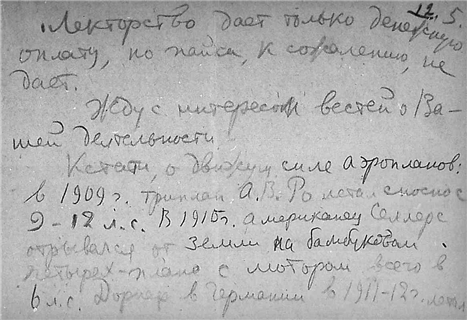 12. 5.
Лекторство дает только денежную
оплату, но пайка, к сожалению, не
дает.
Жду с интересом вестей о Ва-
шей деятельности.
Кстати, о движущ. силе аэропланов:
в 1909 г. триплан А. В. Ро летал с
9-12 л. с. В 1910 г. американец Селлерс
отрывался от земли на бамбуковом
четырех-плане с мотором всего в
6 л. с. Дорнер в Германии в 1911-12 г. летал